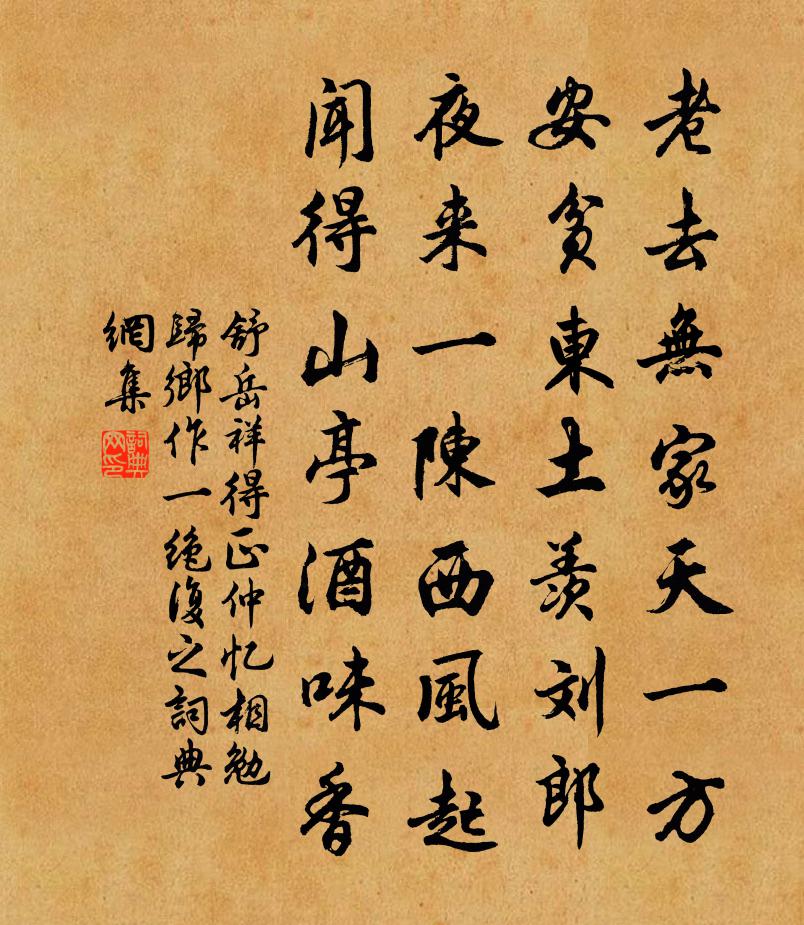 老去無家天一方
安貧東土羨刘郎
夜来一陳西風起
聞得山亭酒味香
舒岳祥得正仲忆相勉
歸鄉作一絶復之詞典
網集
詞典
网印